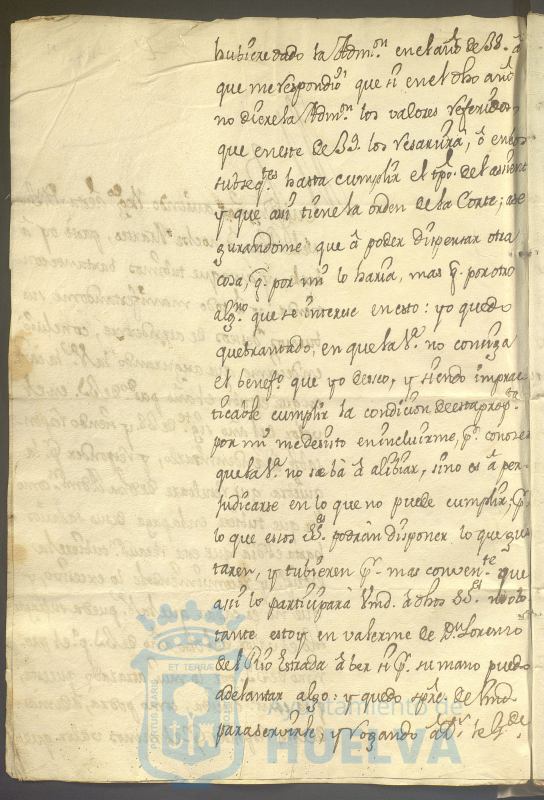 hubiere dado la Adm.on en el año de 38. â
que me respondió que si en el dho año
no diere la Adm.n los valores referidos
que en este de 39. los resarzirà, ô en los
subseq.tes hasta cumplir el tpô. del asiento
y que asi tiene la orden de la Corte; ase
gurandome que â poder dispensar otra
cosa, q. por mi lo haria, mas q. por otro
alg.no que se interese en esto: yo quedo
quebrantado, en que la V.a no consiga
el benef.o que yo deseo, y siendo imprac
ticable cumplir la condicion de esta prop.ta
por mi me desisto en incluirme, p.r conocer
que la V.a no se bà â alibiar, sino es â per
judicarse en lo que no puede cumplir; p.r
lo que essos SS.es podràn disponer lo que gus
taren, y tubieren p.r mas conven.te que
assi lo participarà Vmd. â dhos SS.es no obs
tante estoy en valerme de D.n Lorenzo
del Rio Estrada â ber si p.r su mano puedo
adelantar algo: y quedo sp.re de Vmd
para servirle, y rogando â D.s le g.de
PORTUS MARIS
ET TERRAE
Ayuntamiento de
HUELVA